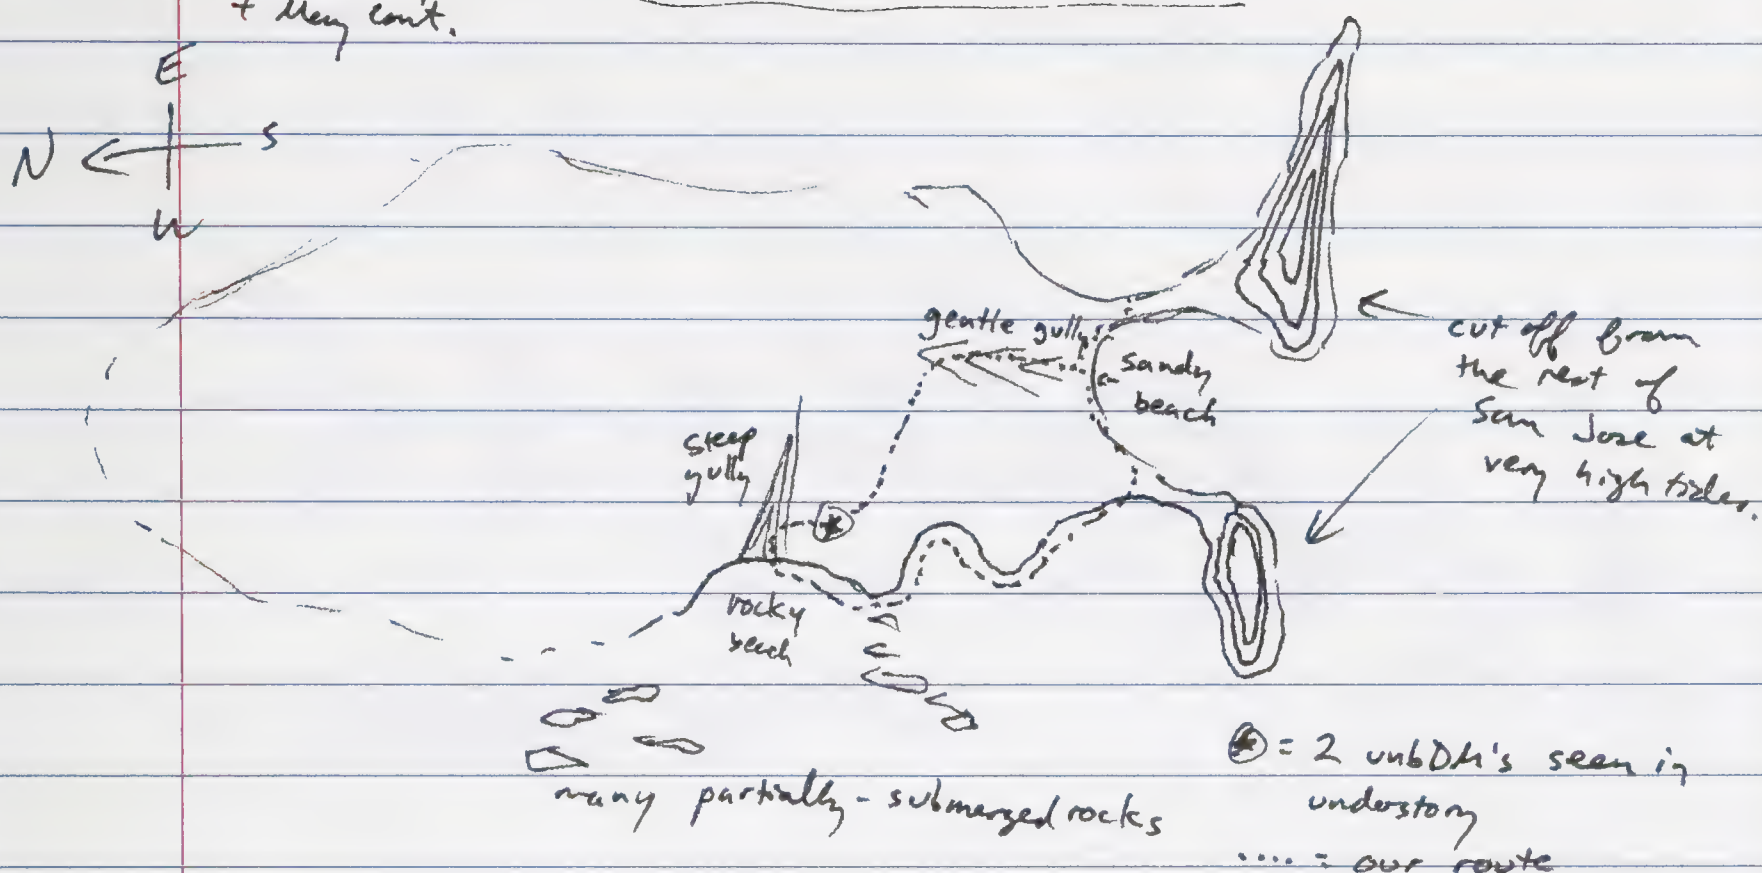 + they can't.
E
N S
W
gentle gully
sandy
beach
steep
gully
rocky
beach
cut off from
the rest of
San Jose at
very high tides.
many partially-submerged rocks
⊛ = 2 unbDM's seen in
understory
.... = our route